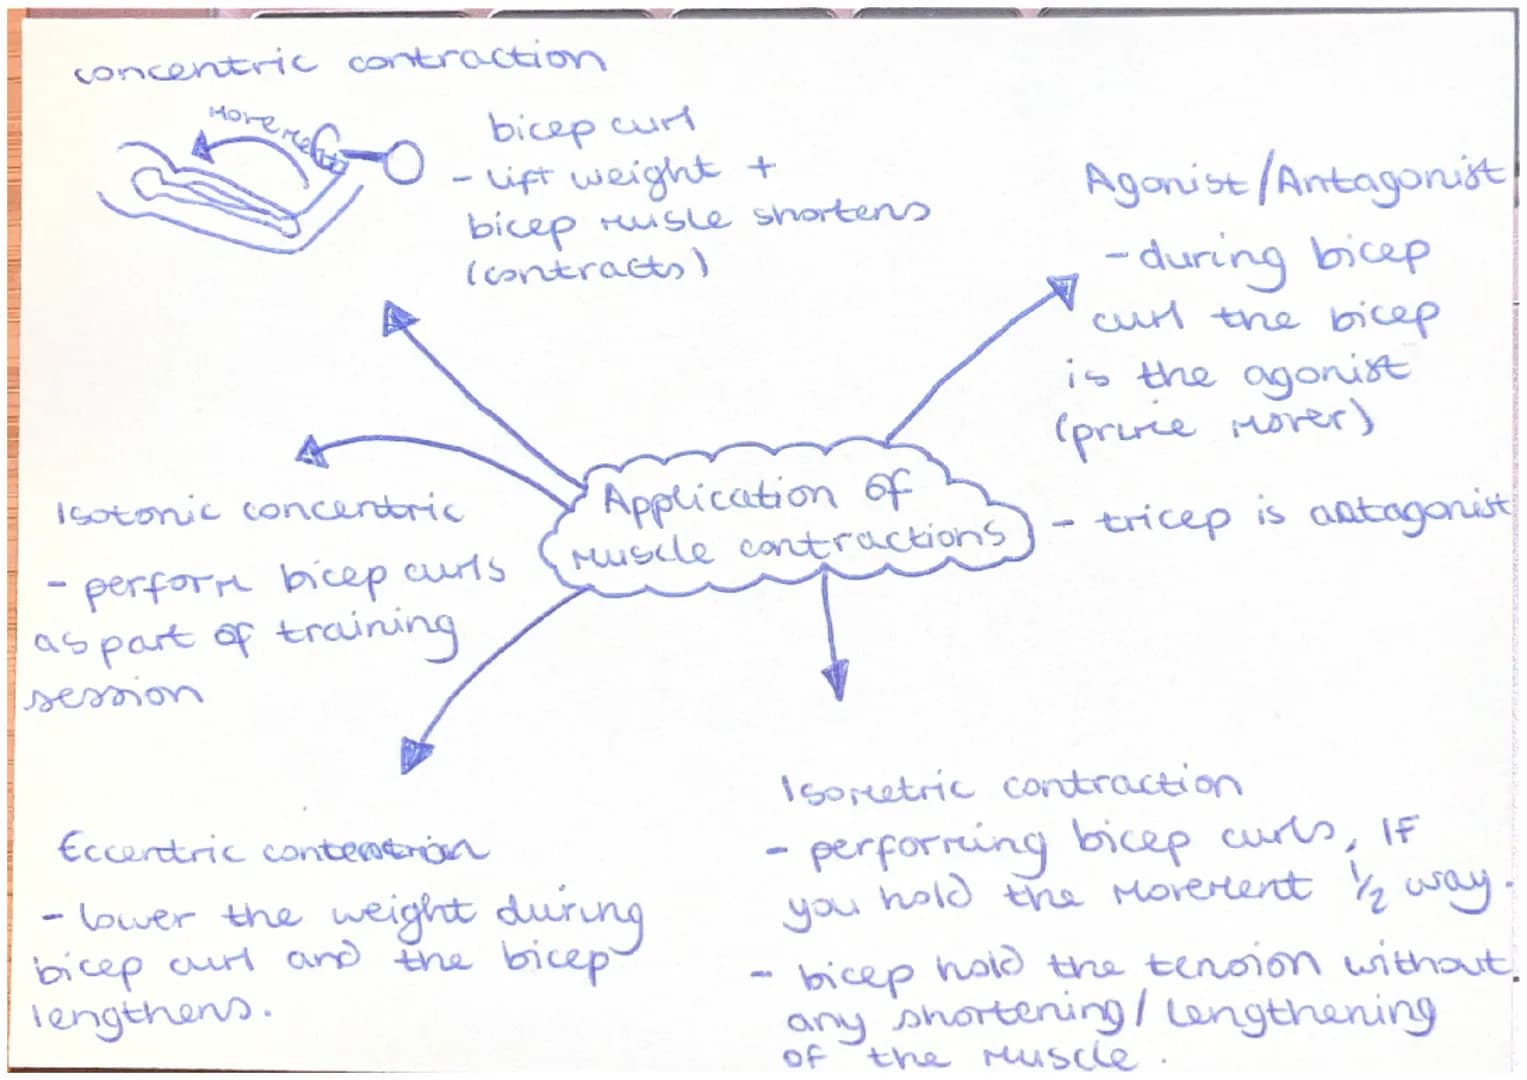 concentric contraction
Movement
bicep curl
- lift weight +
bicep musle shortens
(contracts)
Agonist/Antagonist
- during bicep
curl the bicep
is the agonist
(prime mover)
- tricep is antagonist
Application of
muscle contractions
Isotonic concentric
- perform bicep curls
as part of training
session
Eccentric
- lower the weight during
bicep curl and the bicep
lengthens.
Isometric contraction
- performing bicep curls, If
you hold the movement 1/2 way.
- bicep hold the tension without
any shortening/lengthening
of the muscle.